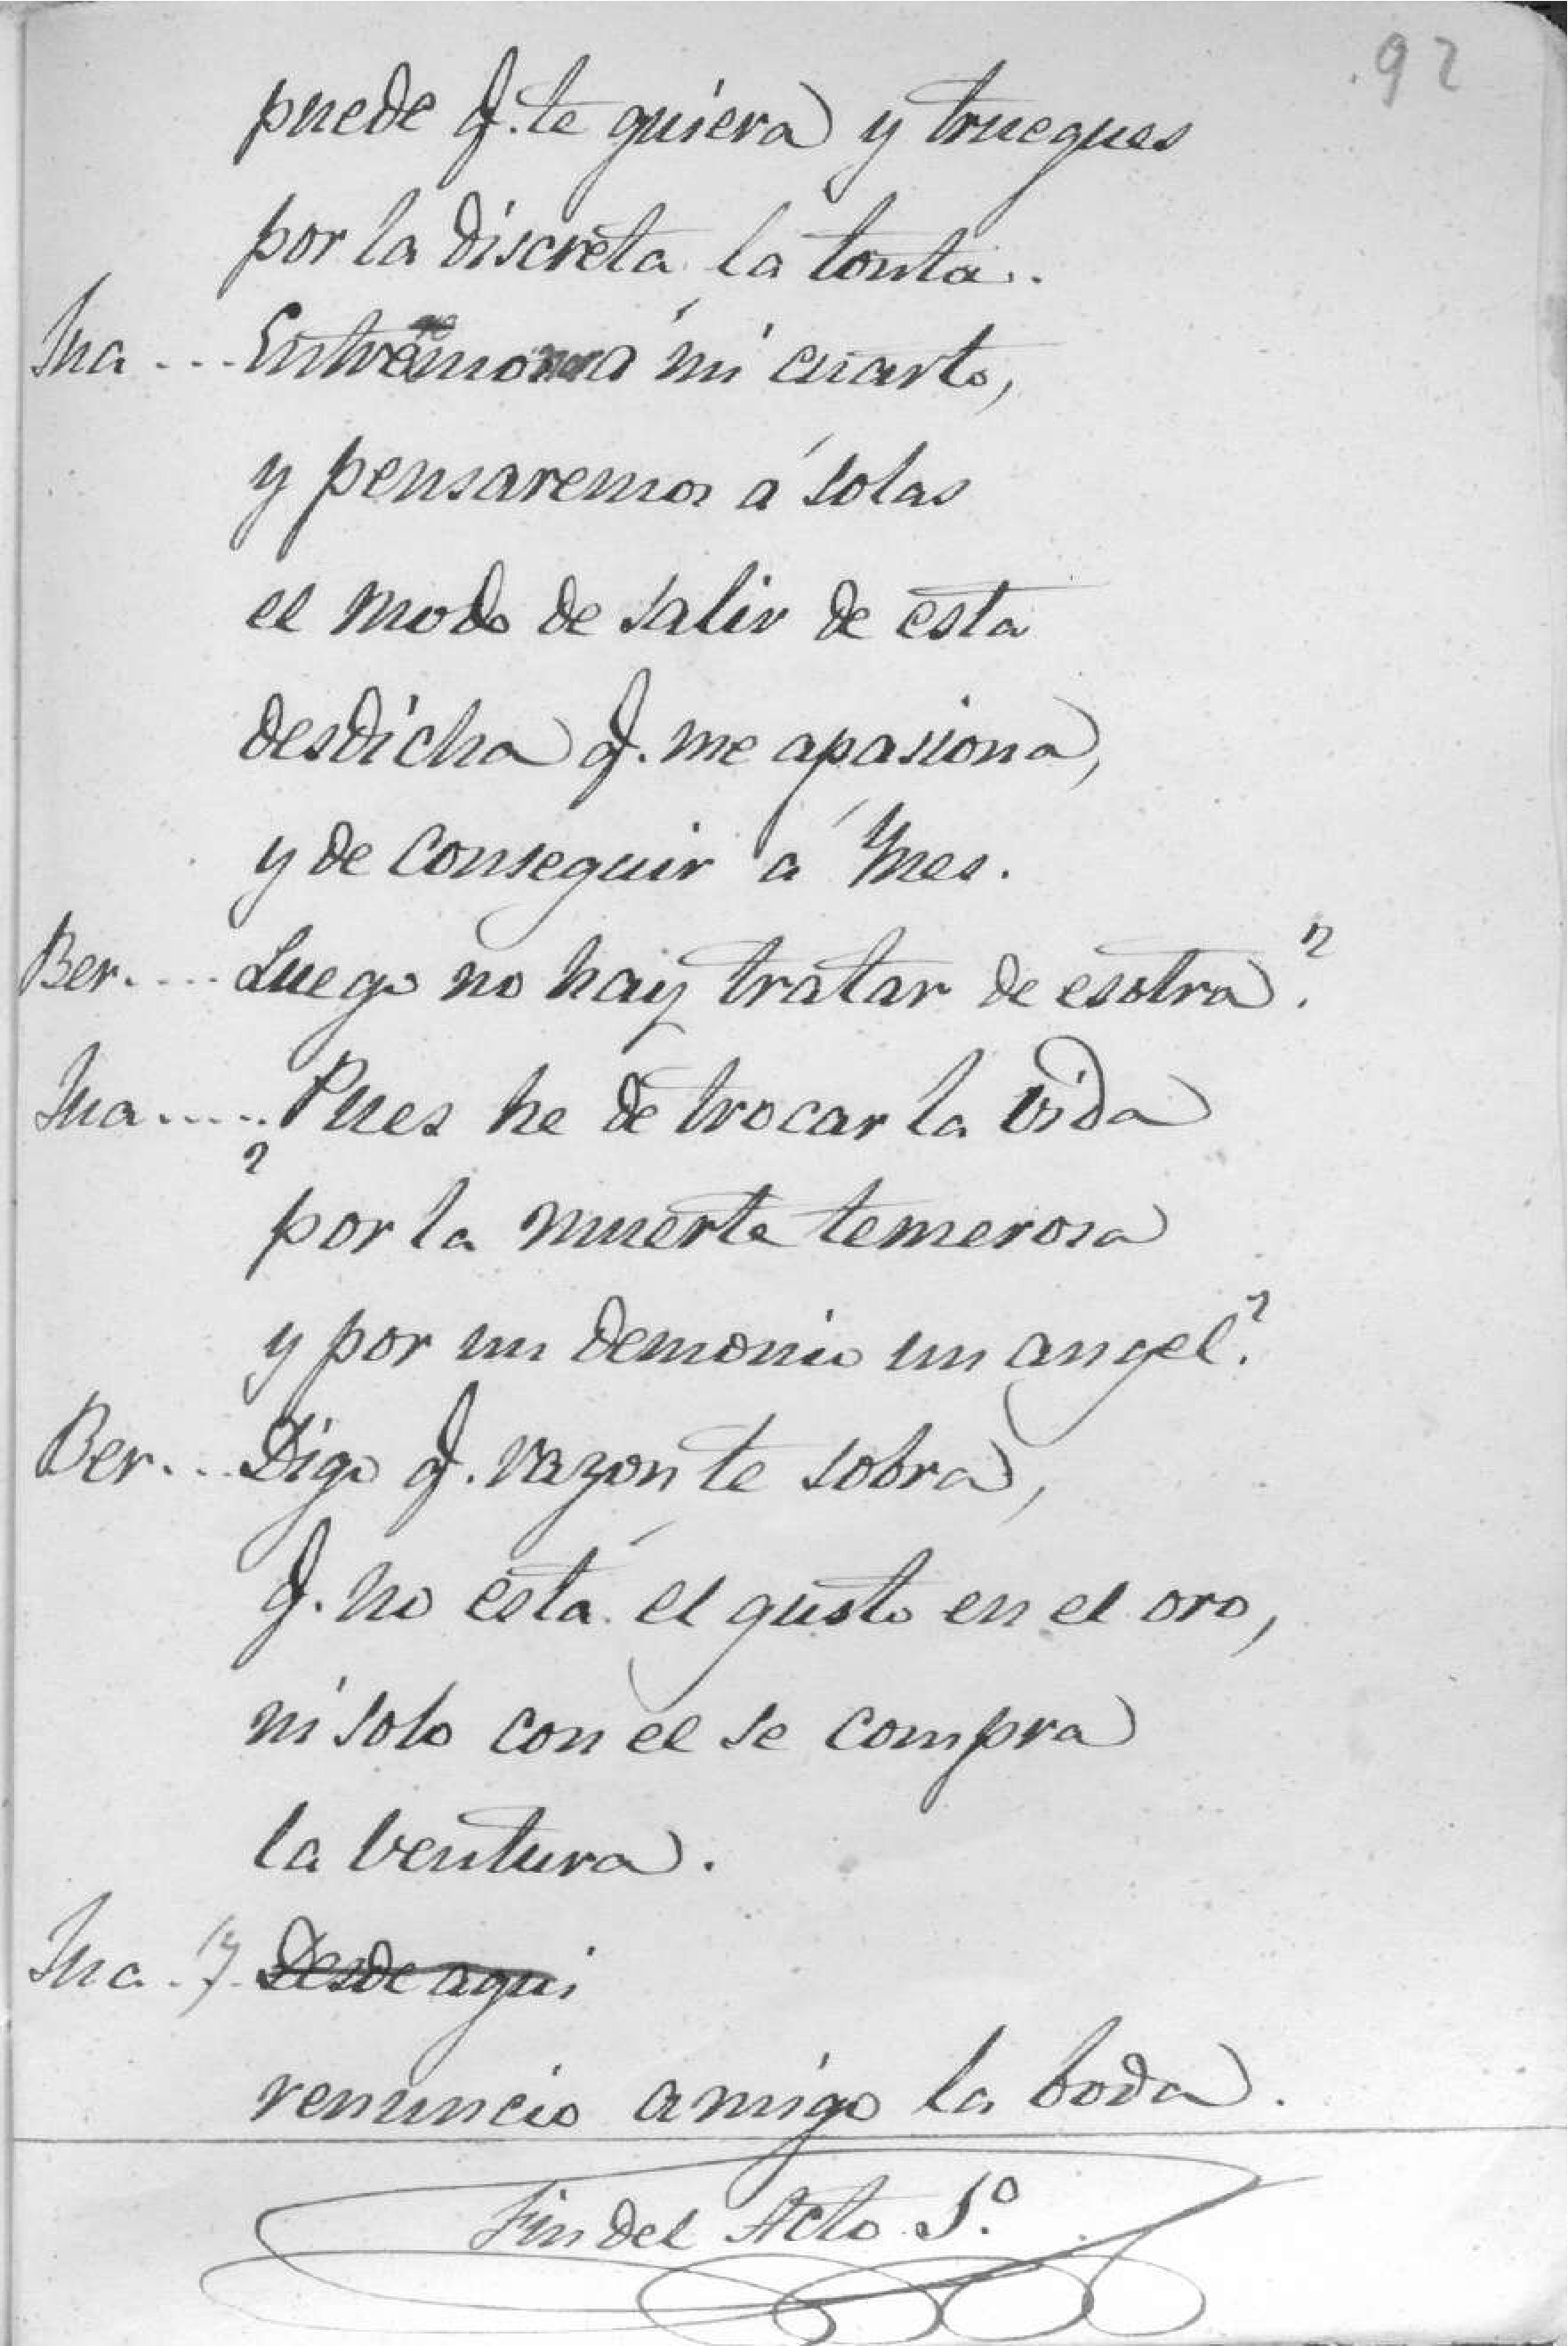 92
puede q. te quiera y trueques
por la discreta la tonta.
Jua... Entremos á mi cuarto,
y pensaremos á solas
el modo de salir de esta
desdicha q. me apasiona,
y de conseguir á Ynes.
Ber.... Luego no hay tratar de esotra?
Jua..... Pues he de trocar la vida
por la muerte temerosa
y por un demonio un angel?
Ber... Digo q. razon te sobra,
q. no está el gusto en el oro,
ni solo con el se compra
la ventura.
Jua. Desde aqui
renuncio amigo la boda.
Fin del Acto 1.º